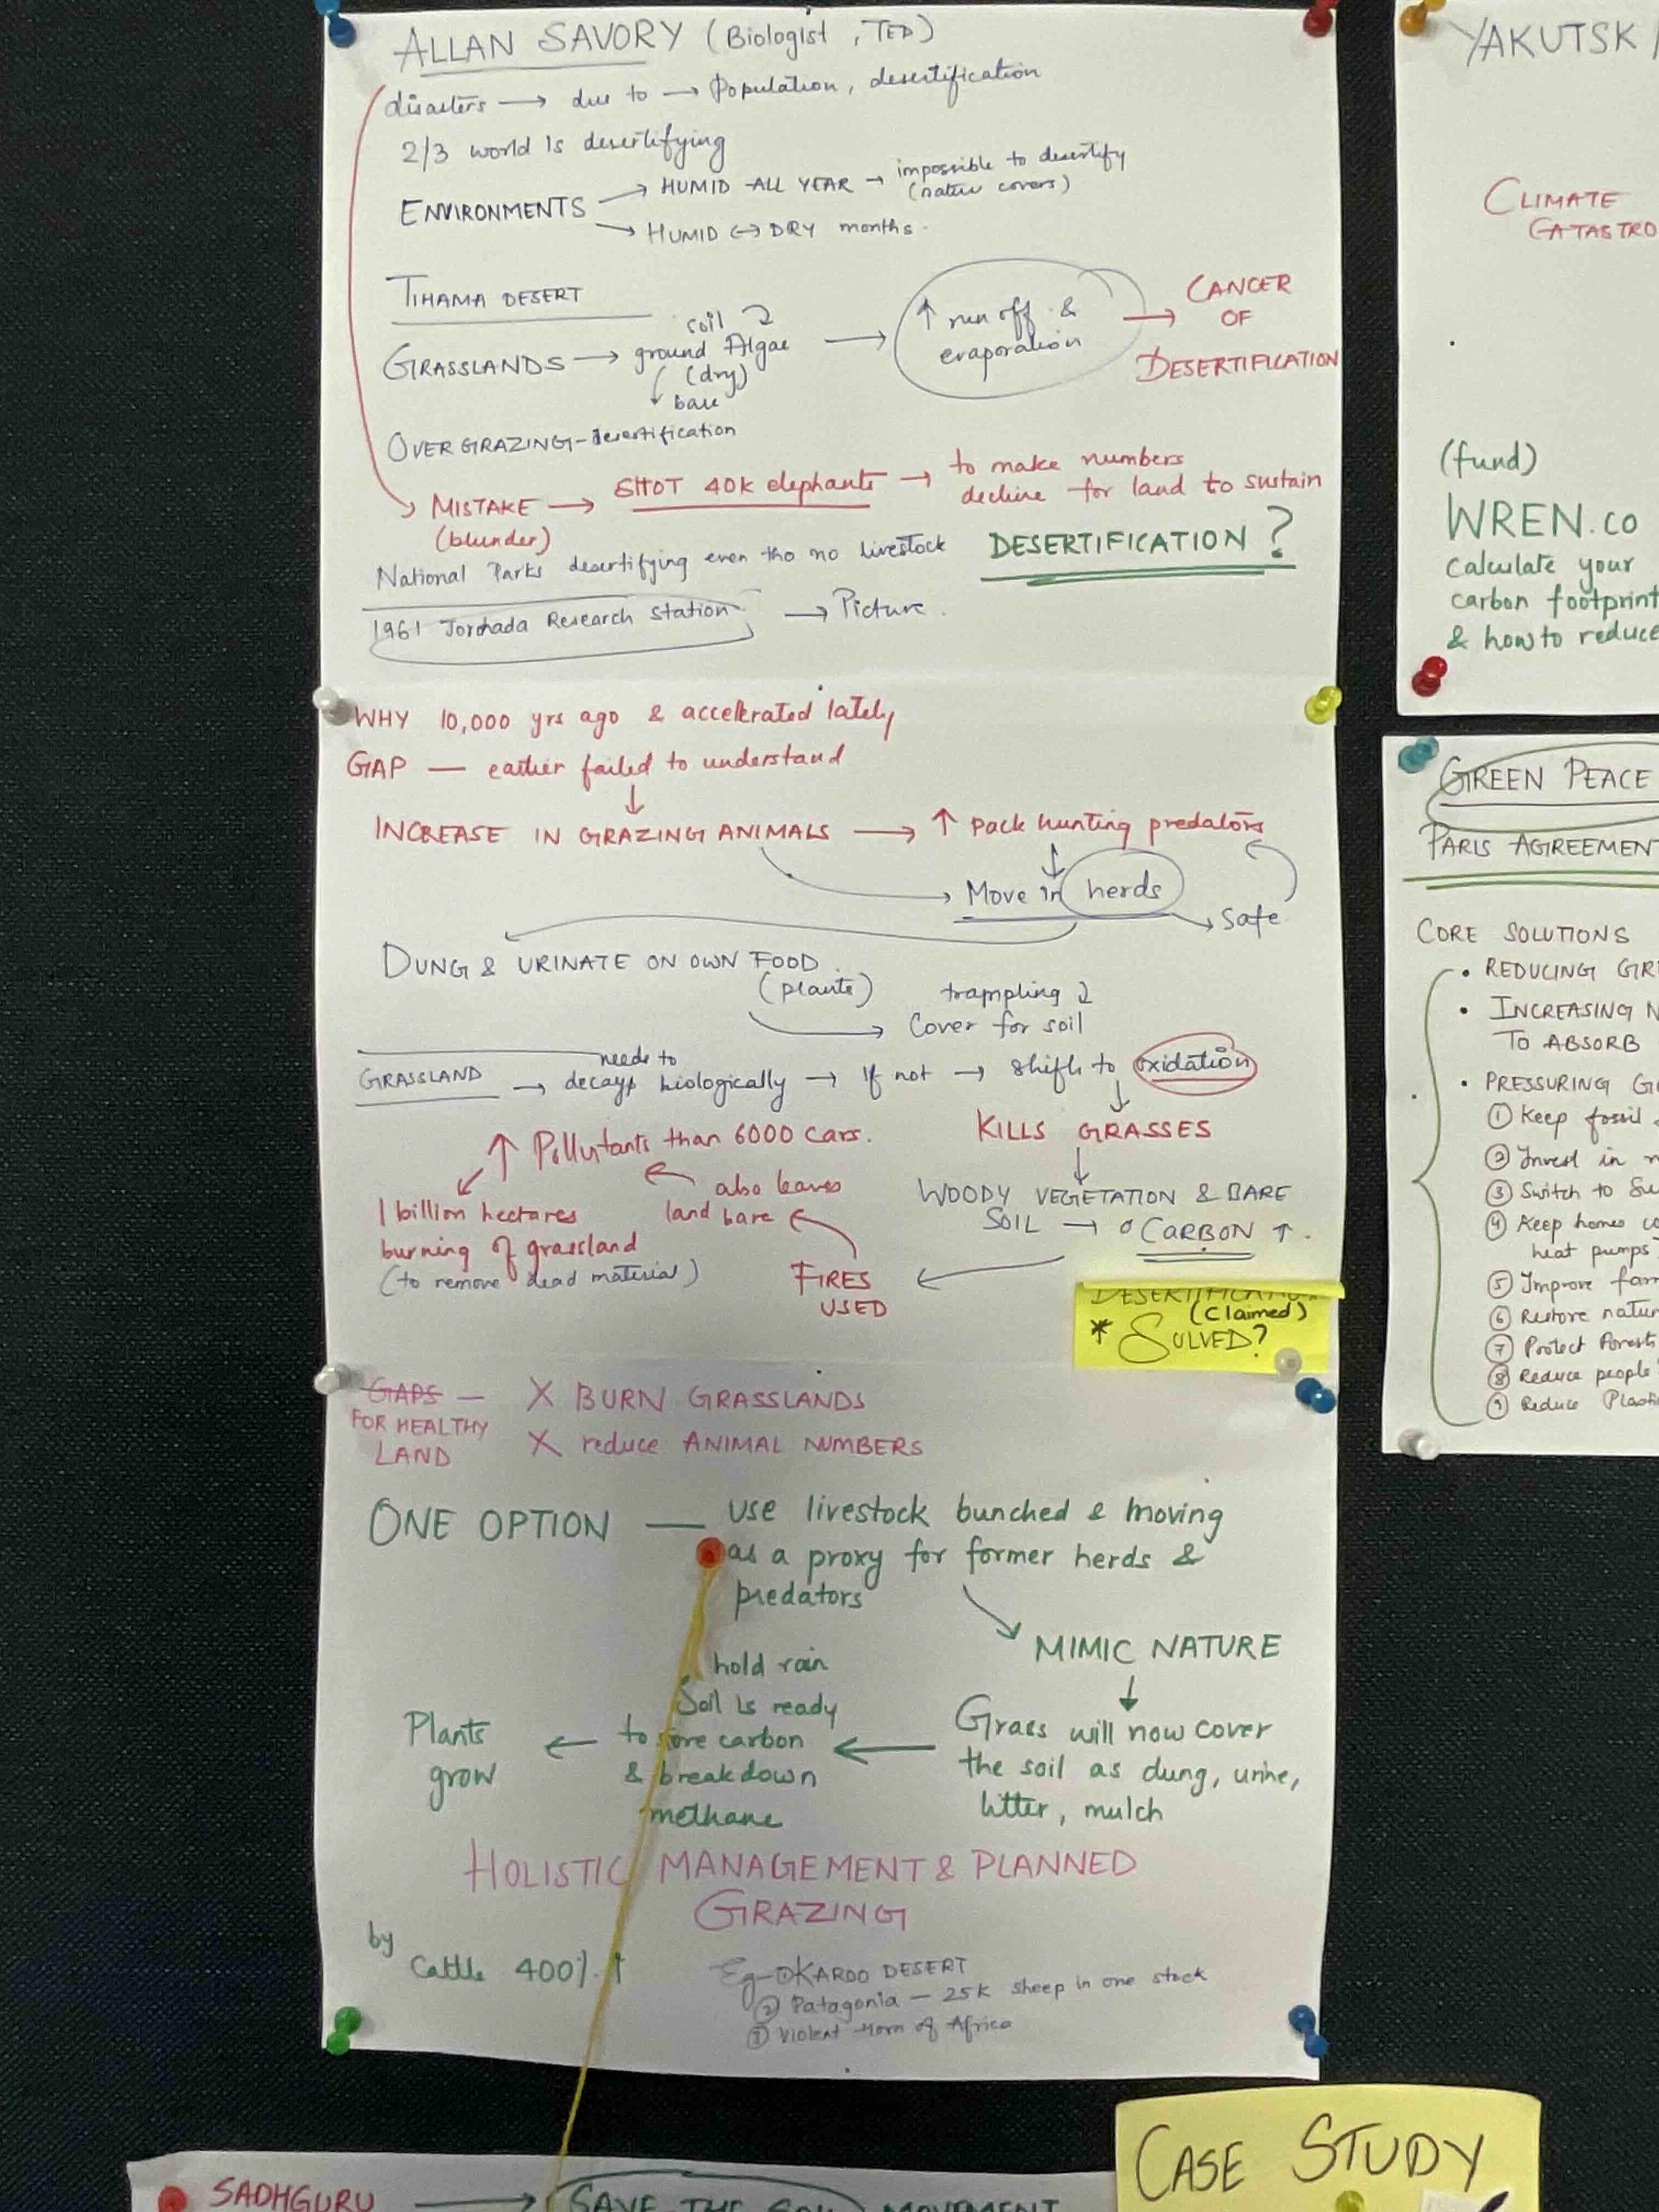 ALLAN SAVORY (Biologist, TED)
disasters → due to → Population, desertification
2/3 world is desertifying
ENVIRONMENTS → HUMID ALL YEAR → impossible to desertify
(nature covers)
→ HUMID ↔ DRY months.
TIHAMA DESERT
GRASSLANDS → soil
ground Algae
(dry)
↓ bare
→ ↑ run off &
evaporation
→ CANCER
OF
DESERTIFICATION
OVERGRAZING - desertification
MISTAKE → SHOT 40K elephants → to make numbers
decline for land to sustain
(blunder)
National Parks desertifying even tho no livestock
DESERTIFICATION?
1961 Jornada Research Station → Picture.
WHY 10,000 yrs ago & accelerated lately
GAP — earlier failed to understand
↓
INCREASE IN GRAZING ANIMALS → ↑ pack hunting predators
↓
Move in herds → Safe
DUNG & URINATE ON OWN FOOD
(plants)
trampling
→ Cover for soil
GRASSLAND → needs to
decays biologically → If not → shifts to oxidation
↓
KILLS GRASSES
↓
WOODY VEGETATION & BARE
SOIL → CARBON ↑.
FIRES
USED
also leaves
land bare
↑ Pollutants than 6000 cars.
1 billion hectares
burning of grassland
(to remove dead material)
DESERTIFICATION
(Claimed)
* SOLVED?
GAPS —
FOR HEALTHY
LAND
X BURN GRASSLANDS
X reduce ANIMAL NUMBERS
ONE OPTION — use livestock bunched & moving
as a proxy for former herds &
predators
MIMIC NATURE
↓
Grass will now cover
the soil as dung, urine,
litter, mulch
←
hold rain
Soil is ready
to store carbon
& breakdown
methane
←
Plants
grow
HOLISTIC MANAGEMENT & PLANNED
GRAZING
by
Cattle 400% ↑
Eg - ① KAROO DESERT
② Patagonia — 25K sheep in one stock
③ Violent Horn of Africa
YAKUTSK
CLIMATE
CATASTRO
(fund)
WREN.CO
calculate your
carbon footprint
& how to reduce
GREEN PEACE
PARIS AGREEMENT
CORE SOLUTIONS
• REDUCING GRE
• INCREASING N
TO ABSORB
• PRESSURING G
① Keep fossil
② Invest in
③ Switch to Su
④ Keep homes co
heat pumps
⑤ Improve farm
⑥ Restore natur
⑦ Protect Forests
⑧ Reduce people
⑨ Reduce Plasti
SADHGURU → SAVE THE SOIL MOVEMENT
CASE STUDY